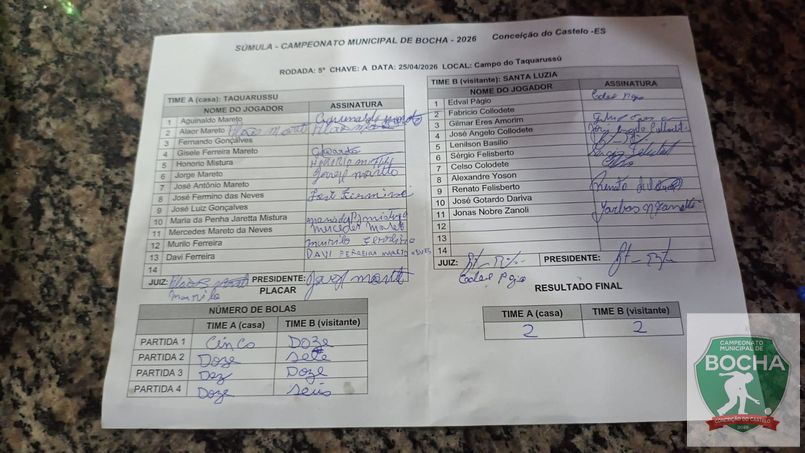 SÚMULA - CAMPEONATO MUNICIPAL DE BOCHA - 2026 Conceição do Castelo -ES
RODADA: 5ª CHAVE: A DATA: 25/04/2026 LOCAL: Campo do Taquarussú
TIME A (casa): TAQUARUSSU
NOME DO JOGADOR ASSINATURA
1 Aguinaldo Mareto Aguinaldo mareto
2 Alaor Mareto
3 Fernando Gonçalves
4 Gisele Ferreira Mareto
5 Honorio Mistura
6 Jorge Mareto Jorge mareto
7 José Antônio Mareto
8 José Fermino das Neves José Fermino
9 José Luiz Gonçalves
10 Maria da Penha Jaretta Mistura
11 Mercedes Mareto da Neves Mercedes Mareto
12 Murilo Ferreira murilo Ferreira
13 Davi Ferreira DAVI FERREIRA MARETO
14
JUIZ: PRESIDENTE: Jorge mareto
TIME B (visitante): SANTA LUZIA
NOME DO JOGADOR ASSINATURA
1 Edval Págio Edval Pagio
2 Fabricio Collodete
3 Gilmar Eres Amorim
4 José Angelo Collodete
5 Lenilson Basilio
6 Sérgio Felisberto
7 Celso Colodete
8 Alexandre Yoson
9 Renato Felisberto
10 José Gotardo Dariva
11 Jonas Nobre Zanoli
12
13
14
JUIZ: PRESIDENTE:
Edval Pagio
PLACAR
NÚMERO DE BOLAS
TIME A (casa) TIME B (visitante)
PARTIDA 1 Cinco Doze
PARTIDA 2 Doze sete
PARTIDA 3 Dez Doze
PARTIDA 4 Doze seis
RESULTADO FINAL
TIME A (casa) TIME B (visitante)
2 2
CAMPEONATO
MUNICIPAL DE
BOCHA
CONCEIÇÃO DO CASTELO
2026